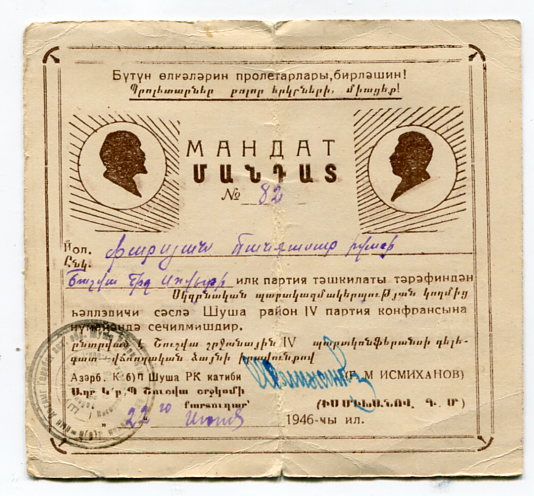 Бүтүн өлкәләрин пролетарлары, бирләшин!
Պրոլետարներ բոլոր երկրների, միացեք!
МАНДАТ
ՄԱՆԴԱՏ
№ 82
Јол.
Ընկ.
илк партия тәшкилаты тәрәфиндән
Սկզբնական պարտկազմակերպության կողմից
һәлледичи сәслә Шуша район IV партия конфрансына
нүмајәндә сечилмишдир.
ընտրված է Շուշվա շրջանային IV պարտկոնֆերանսի դելե-
գատ վճռողական ձայնի իրավունքով
Азәрб. К(б)П Шуша РК катиби
М ИСМИХАНОВ)
Ադր Կ(բ)Պ Շուշվա շրջկոմի
քարտուղար
(ԻՍՄԻԽԱՆՈՎ, Գ. Մ)
22 го 1946-чы ил.